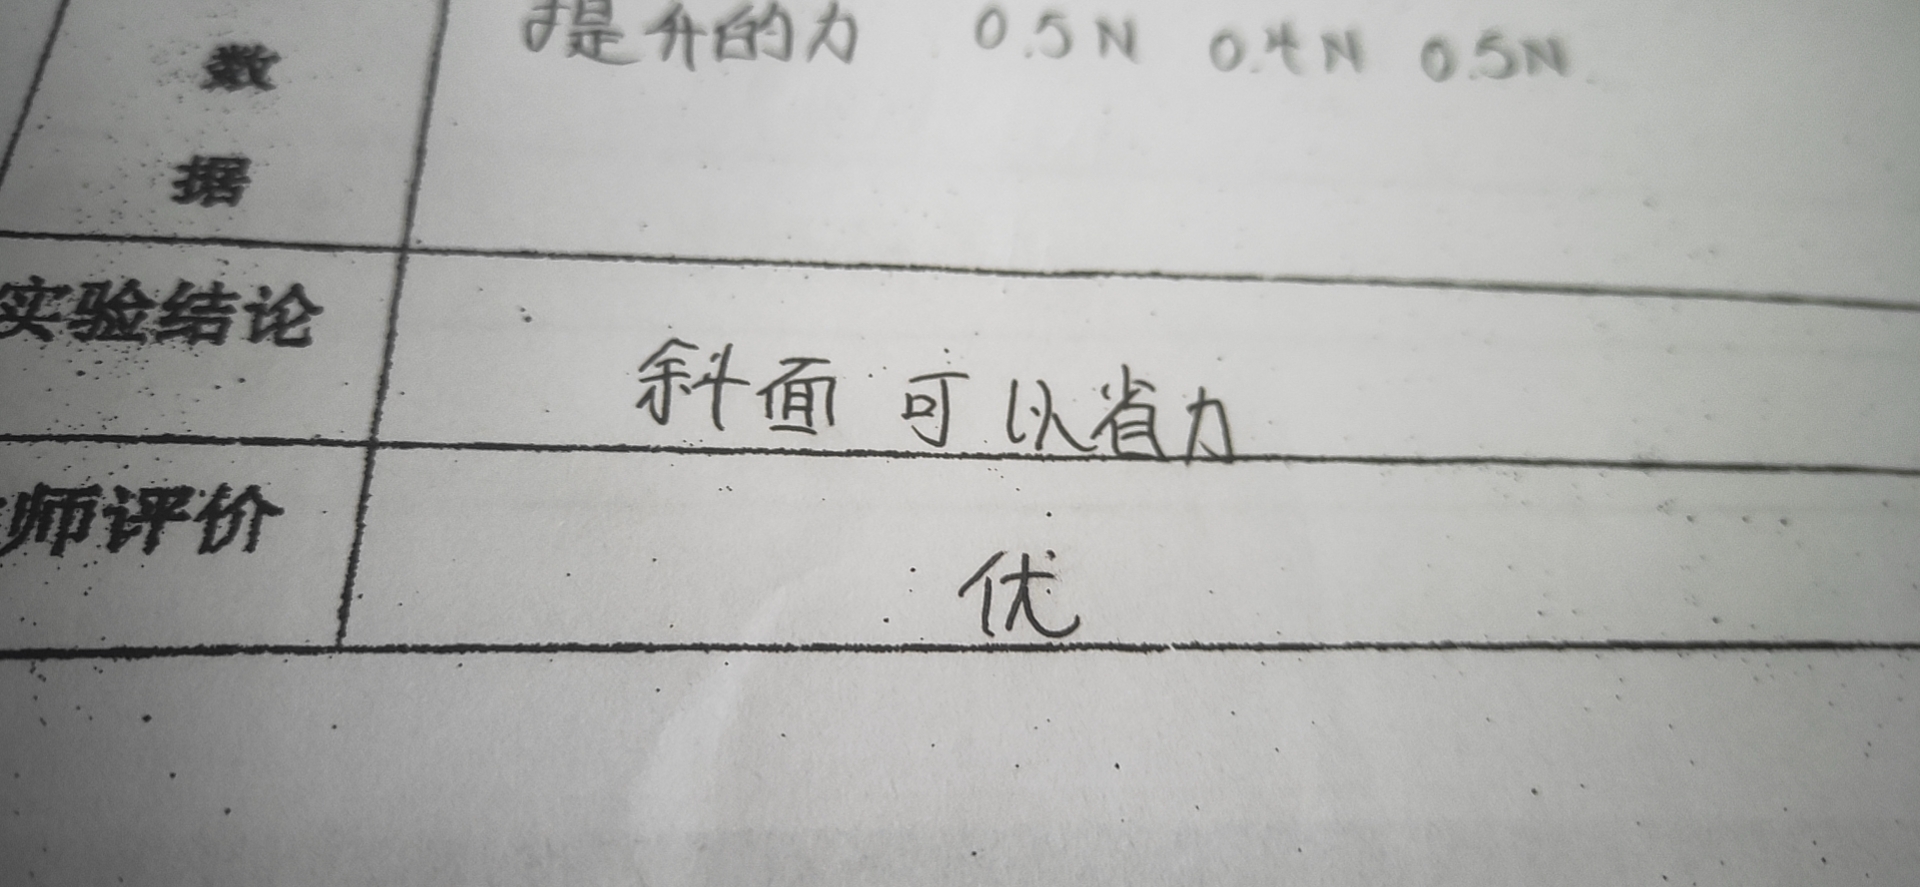 提升的力 0.5N 0.4N 0.5N
数
据
实验结论 斜面可以省力
师评价 优